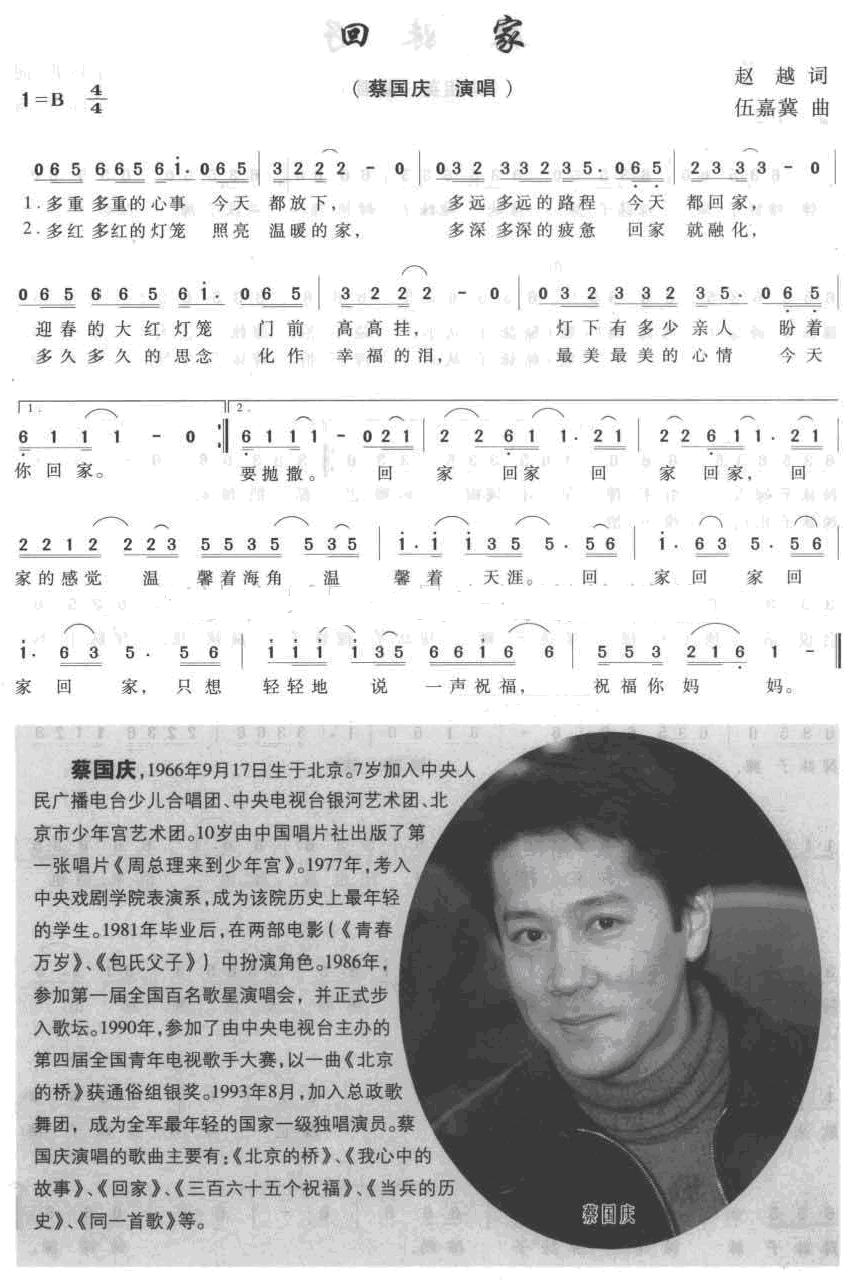 回 家
(蔡国庆 演唱)
赵 越 词
伍嘉冀 曲
1=B 4/4
0 6 5 6 6 5 6 1· 0 6 5 | 3 2 2 2 - 0 | 0 3 2 3 3 2 3 5· 0 6 5 | 2 3 3 3 - 0 |
1.多重 多重的心事 今天 都放下, 多远 多远的路程 今天 都回家,
2.多红 多红的灯笼 照亮 温暖的家, 多深 多深的疲惫 回家 就融化,
0 6 5 6 6 5 6 1· 0 6 5 | 3 2 2 2 - 0 | 0 3 2 3 3 2 3 5· 0 6 5 |
迎春的大红灯笼 门前 高高挂, 灯下有多少亲人 盼着
多久多久的思念 化作 幸福的泪, 最美最美的心情 今天
1. 2.
6 1 1 1 - 0 :‖ 6 1 1 1 - 0 2 1 | 2 2 6 1 1· 2 1 | 2 2 6 1 1· 2 1 |
你回家。 要抛撒。 回 家 回家 回 家 回家, 回
2 2 1 2 2 2 3 5 5 3 5 5 3 5 | 1· 1 1 3 5 5· 5 6 | 1· 6 3 5· 5 6 |
家的感觉 温 馨着海角 温 馨着 天涯。 回 家回 家回
1· 6 3 5· 5 6 | 1 1 1 1 3 5 6 6 1 6 6 | 5 5 3 2 1 6 1 - ‖
家 回 家, 只想 轻轻地 说 一声祝福, 祝福你妈 妈。
蔡国庆,1966年9月17日生于北京。7岁加入中央人
民广播电台少儿合唱团、中央电视台银河艺术团、北
京市少年宫艺术团。10岁由中国唱片社出版了第
一张唱片《周总理来到少年宫》。1977年,考入
中央戏剧学院表演系,成为该院历史上最年轻
的学生。1981年毕业后,在两部电影(《青春
万岁》、《包氏父子》)中扮演角色。1986年,
参加第一届全国百名歌星演唱会,并正式步
入歌坛。1990年,参加了由中央电视台主办的
第四届全国青年电视歌手大赛,以一曲《北京
的桥》获通俗组银奖。1993年8月,加入总政歌
舞团,成为全军最年轻的国家一级独唱演员。蔡
国庆演唱的歌曲主要有:《北京的桥》、《我心中的
故事》、《回家》、《三百六十五个祝福》、《当兵的历
史》、《同一首歌》等。
蔡国庆